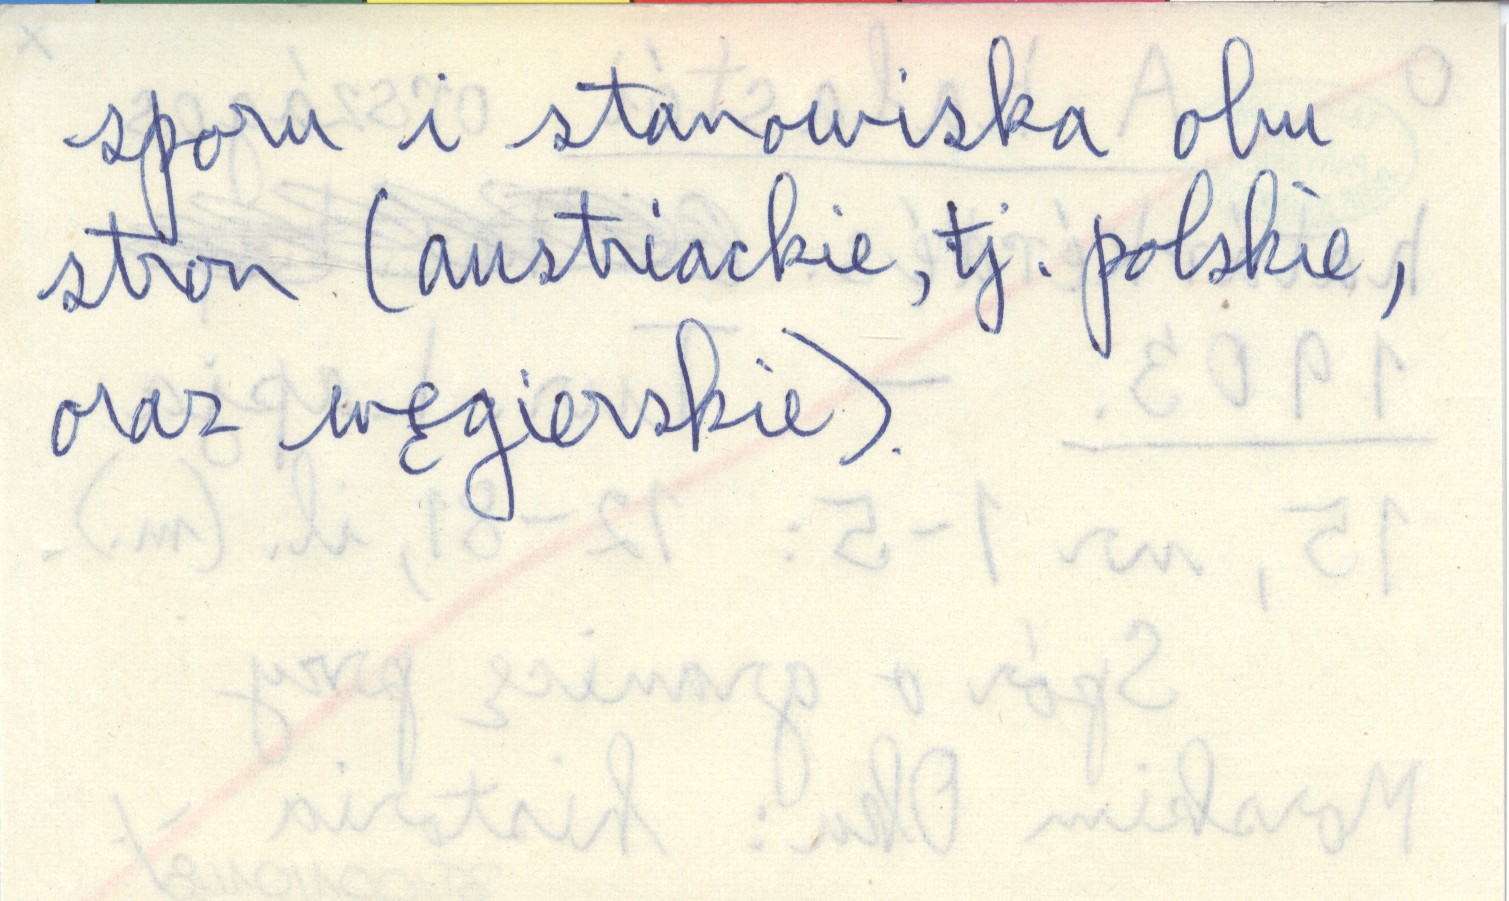 sporu i stanowiska obu
stron (austriackie, tj. polskie,
oraz węgierskie).